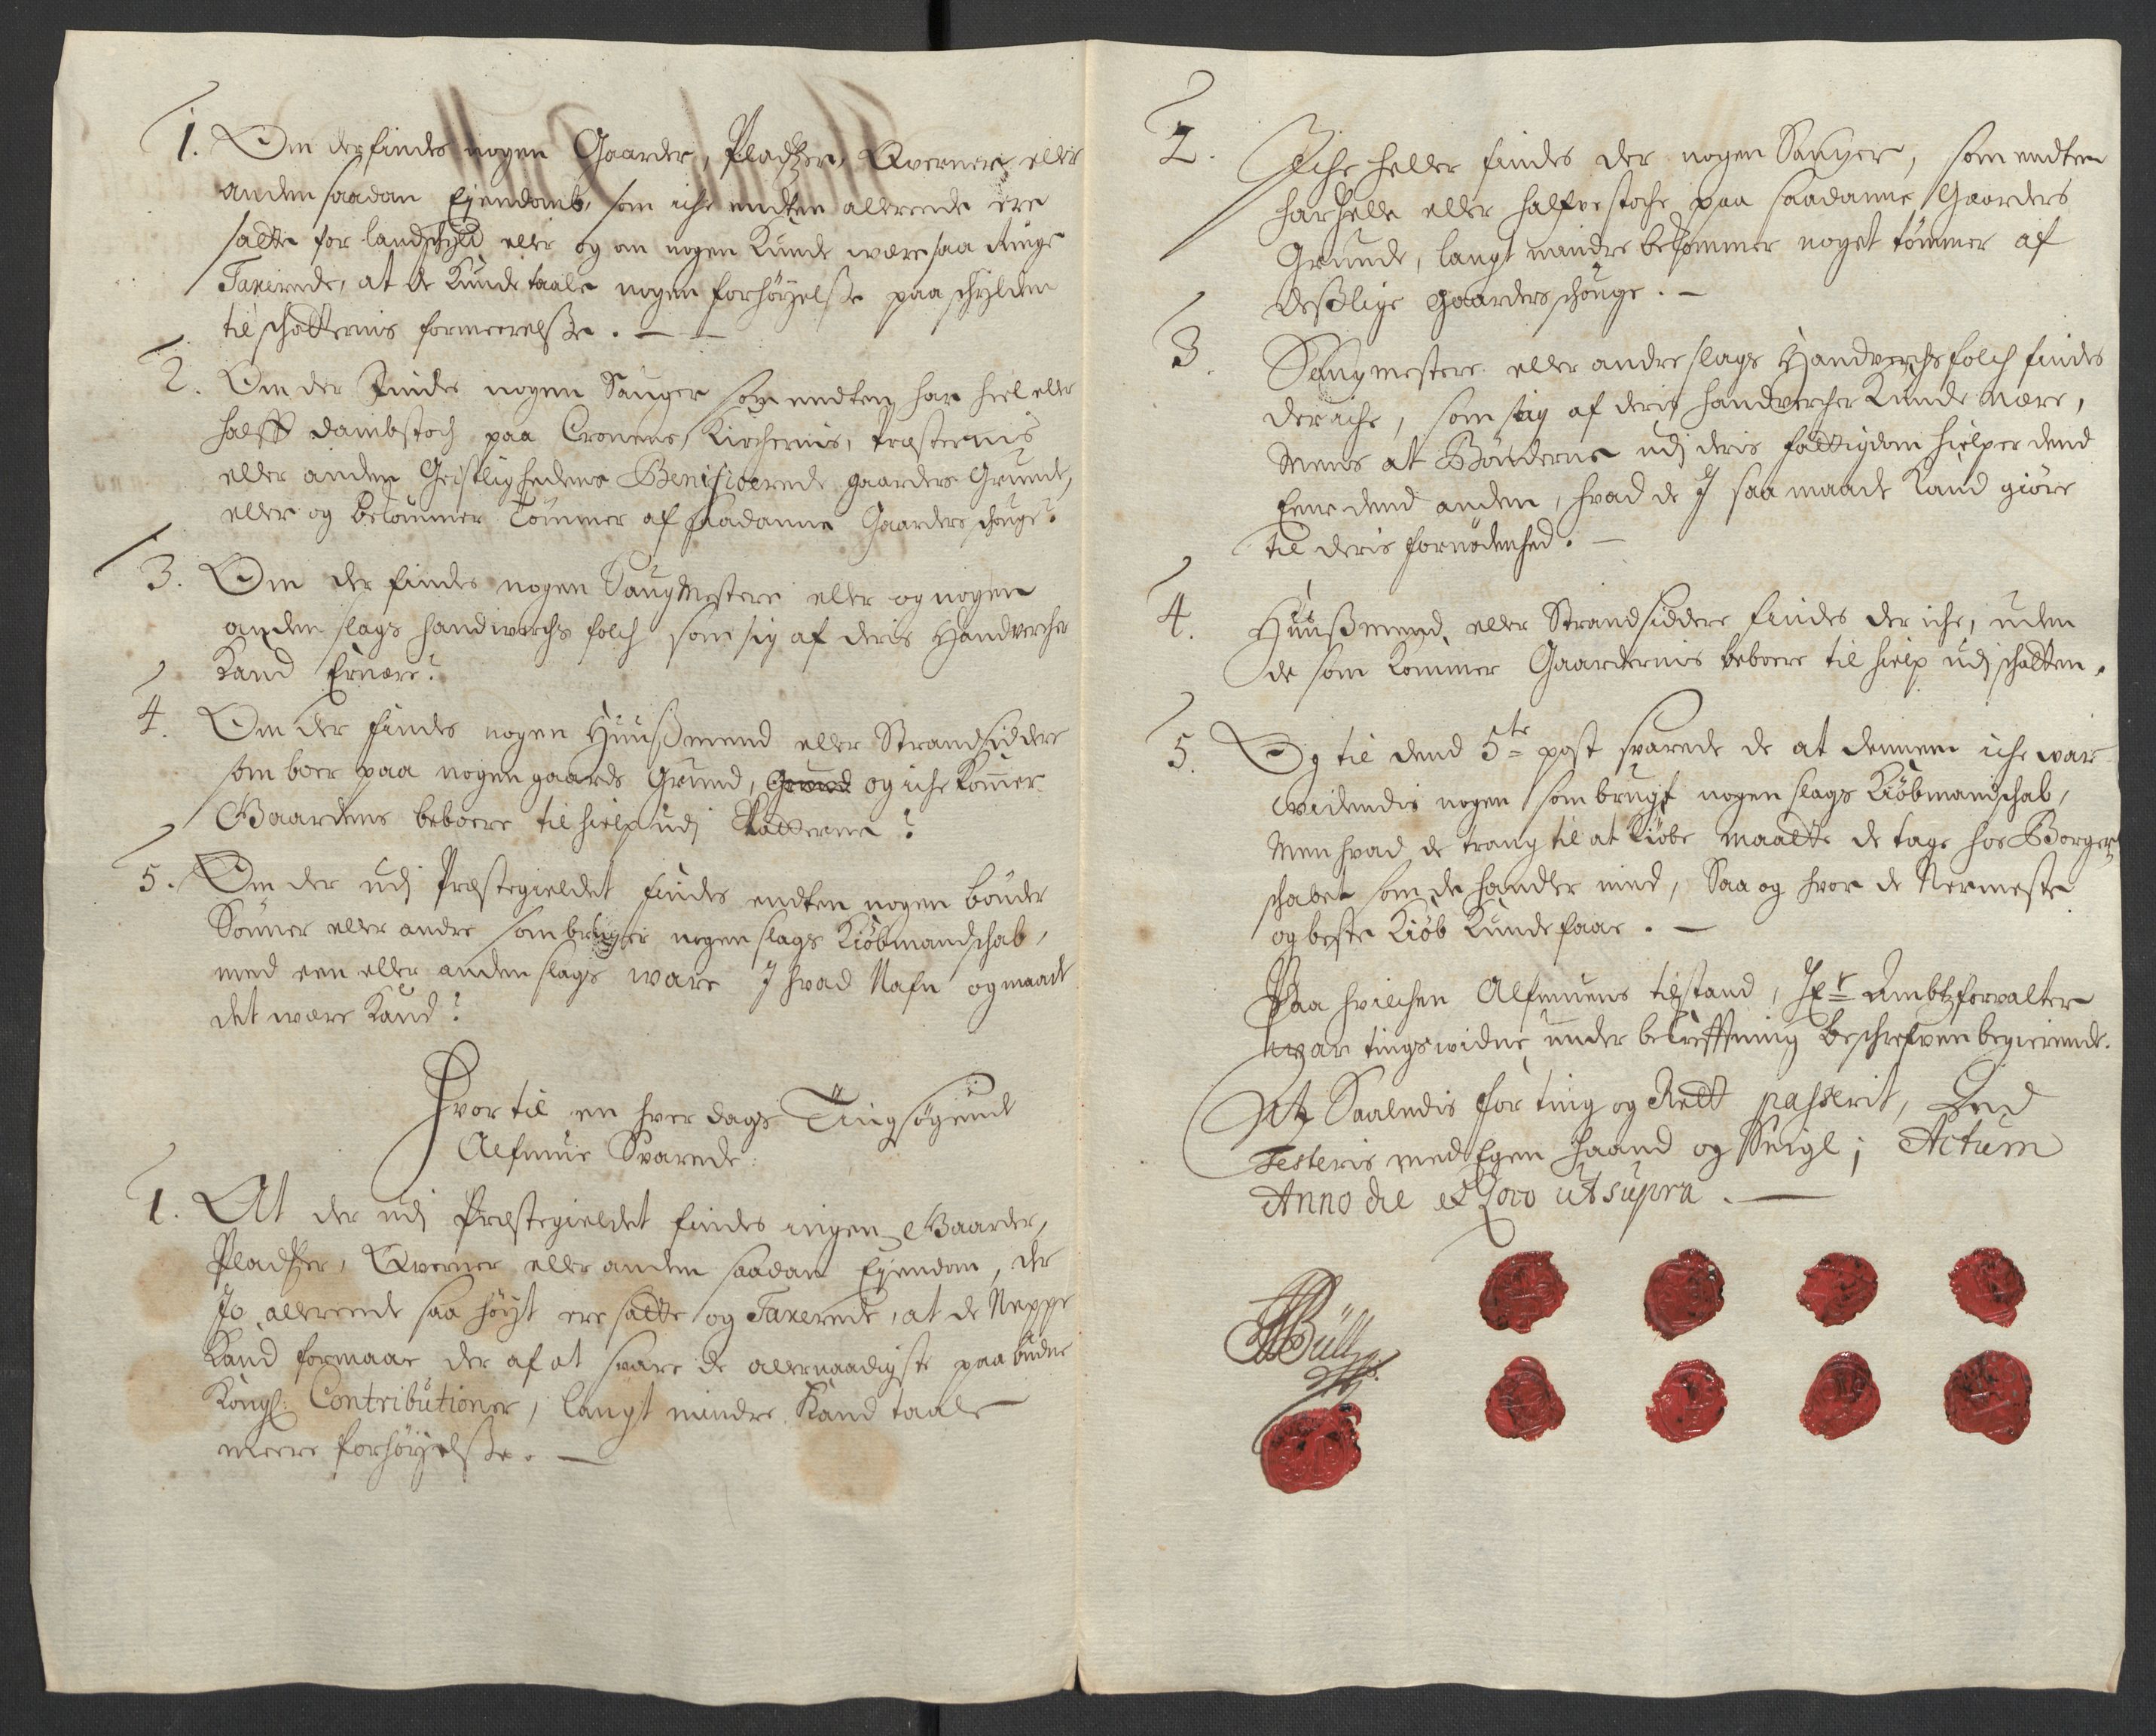 1. Om der findes nogen Gaarder, Pladtzer, Qverner, eller
anden saadan Ejendomb, som iche endten allerede ere
satte for landschyld eller og om nogen Kunde være saa ringe
Taxerede, at de Kunde taale nogen forhøyelse paa schylden
til schatternis formeerelse. —
2. Om der findes nogen Sauger som endten har heel eller
halff dambstoch paa Cronens, Kirchernis, Præsternis
eller anden Geistlighedens Benificerede gaarders Grunde,
eller og bekommer Tømmer af saadanne Gaarders schouge?
3. Om der findes nogen Saugmestere eller og nogen
anden slags handtverchs folch som sig af deris Handtvercher
Kand Ernære?
4. Om der findes nogen Huusmend eller Strandsiddere
som boer paa nogen gaards Grund, Grund og iche kommer
Gaardens beboere til hielp udj Skatterne?
5. Om der udj Præstegieldet findes endten nogen bønder
Sønner eller andre som bruger nogen slags Kiøbmandschab,
med een eller anden slags ware J hvad Nafn og maade
det være Kand?
Hvor til en hver dags Tingsøgende
Allmue Svarede:
1. At der udj Præstegieldet findes ingen Gaarder,
Pladtzer, Qverner eller anden saadan Ejendom, der
Jo allereede saa høyt ere satte og Taxerede, at de Neppe
Kand formaae der af at svare de allernaadigste paabudne
Kongl: Contributioner, langt mindre Kand taale
meere forhøyelse. —
2. Iche heller findes der nogen Sauger, som endten
har helle eller halfve stoche paa saadanne Gaarders
Grunde, langt mindre bekommer noget tømmer af
deslige gaarders schouge. —
3. Saugmestere eller andre slags Handverchsfolch findes
der iche, som sig af deris handvercher Kunde nære,
Mens at Bønderne udj deris fattigdom hielper dend
Eene dend anden, hvad de J saa maade Kand giøre
til deris fornødenhed. —
4. Huusmend, eller Strandsiddere findes der iche, uden
de som Kommer Gaardernis beboere til hielp udj schatten.
5. Og til dend 5te post svarede de at dennem iche war
widendis nogen som brugt nogen slags Kiøbmandschab,
Men hvad de trang til at Kiøbe maatte de tage hos Borger
schabet som de handler med, Saa og hvor de Nermeste
og beste Kiøb Kunde faae. —
Paa hvilchen Allmuens tilstand, Hr Ambtzforvalter
war tingswidne under bekrefftning beschrefven begierende.
At Saaledis for ting og Rett passerit,
Testeris med Egen haand og Seigl; Actum
Anno die et Loco ut supra. —